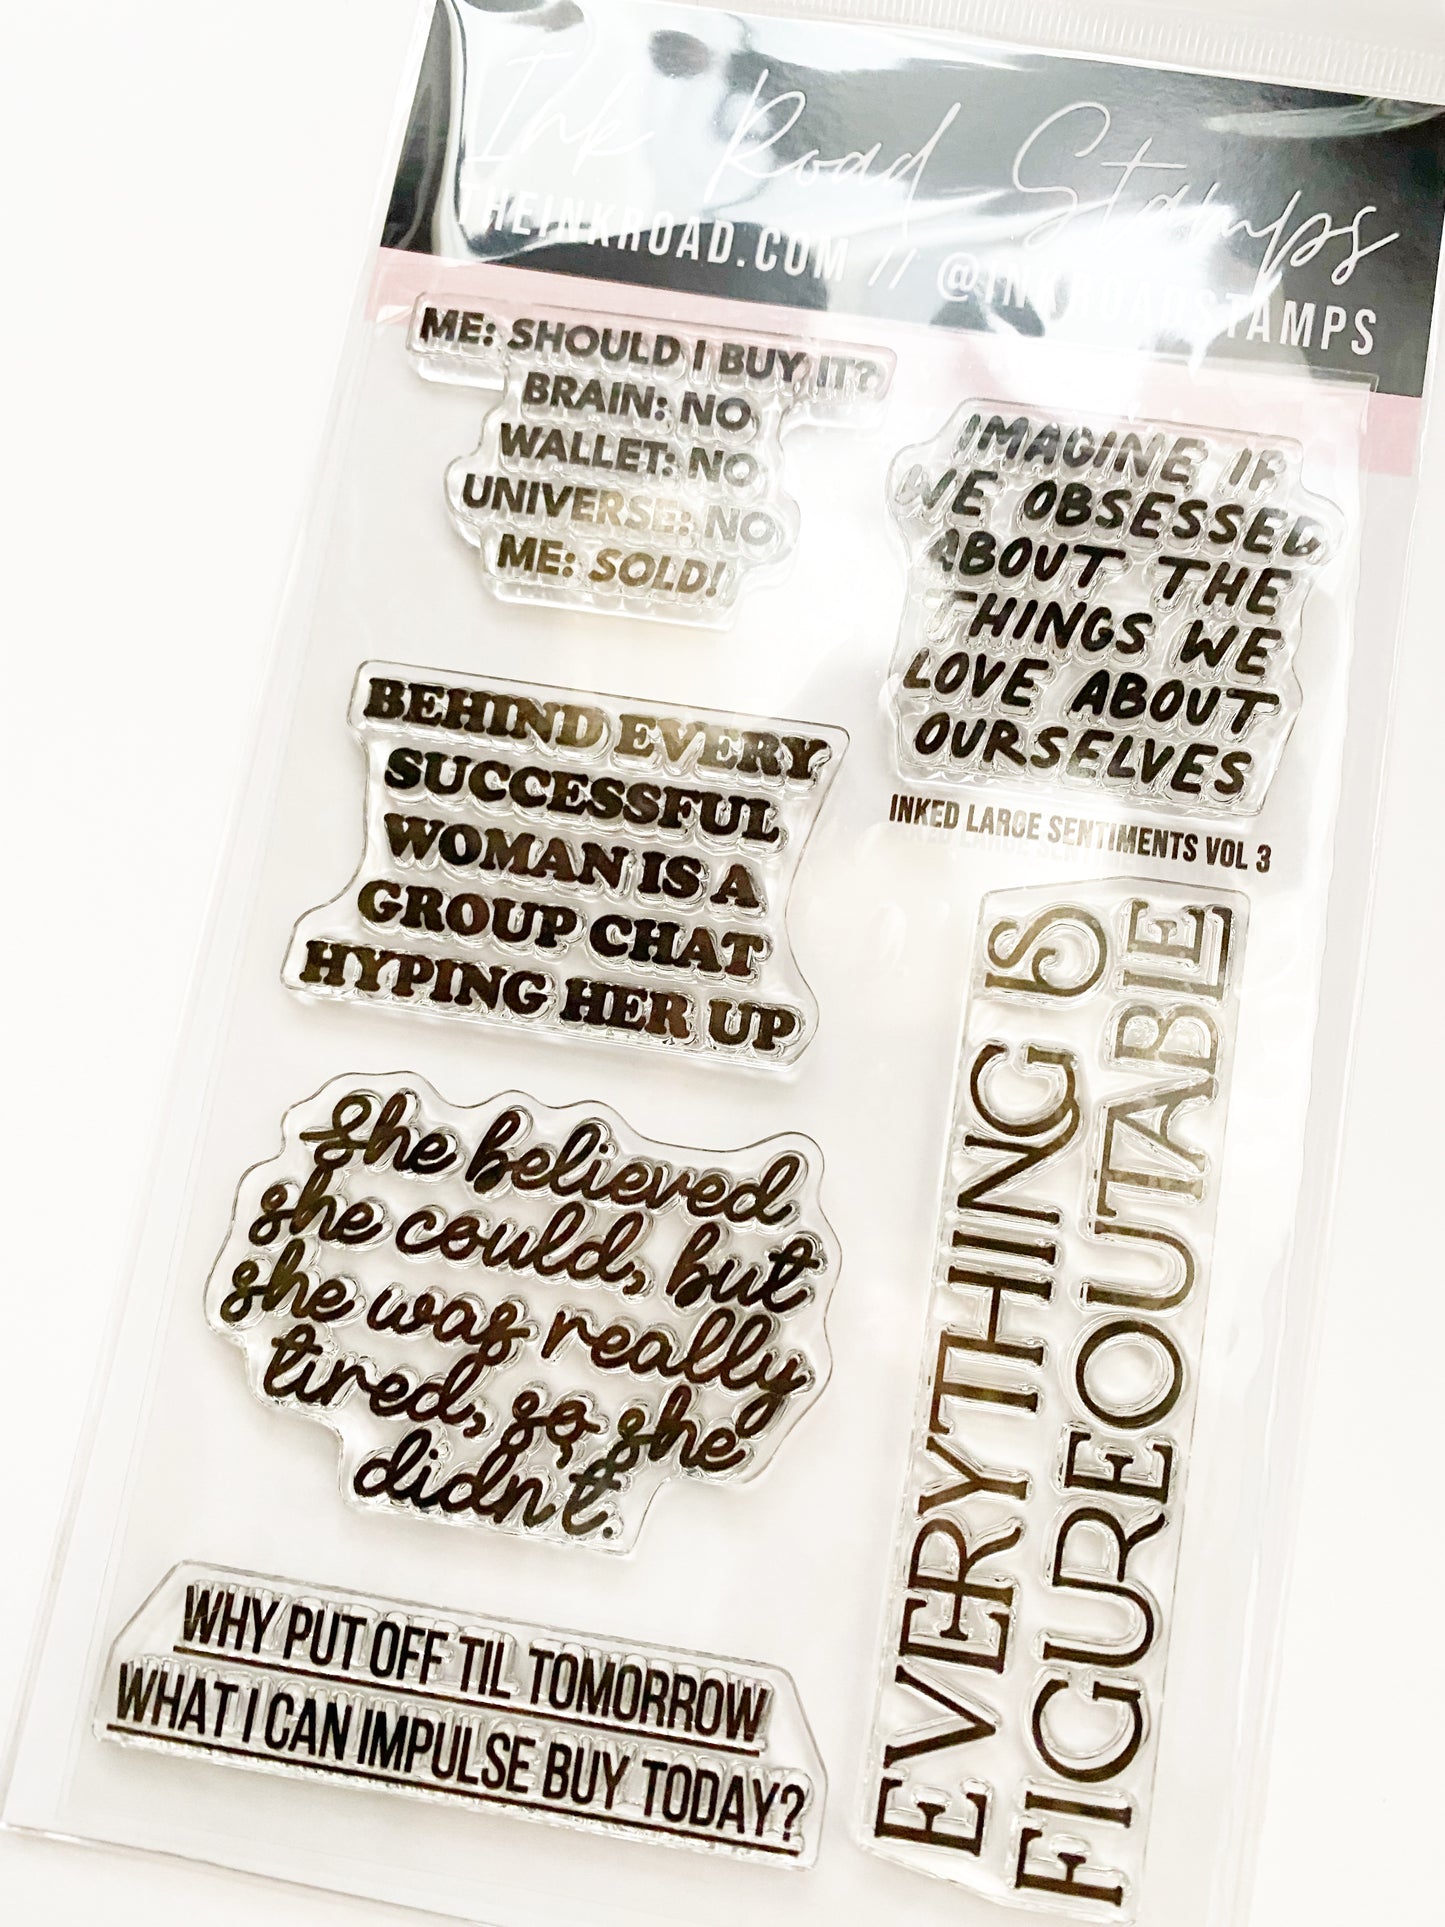 Ink Road Stamps
THEINKROAD.COM // @INKROADSTAMPS
ME: SHOULD I BUY IT?
BRAIN: NO
WALLET: NO
UNIVERSE: NO
ME: SOLD!
IMAGINE IF
WE OBSESSED
ABOUT THE
THINGS WE
LOVE ABOUT
OURSELVES
INKED LARGE SENTIMENTS VOL 3
BEHIND EVERY
SUCCESSFUL
WOMAN IS A
GROUP CHAT
HYPING HER UP
She believed
she could, but
she was really
tired, so, she
didn't.
EVERYTHING IS
FIGUREOUTABLE
WHY PUT OFF TIL TOMORROW
WHAT I CAN IMPULSE BUY TODAY?